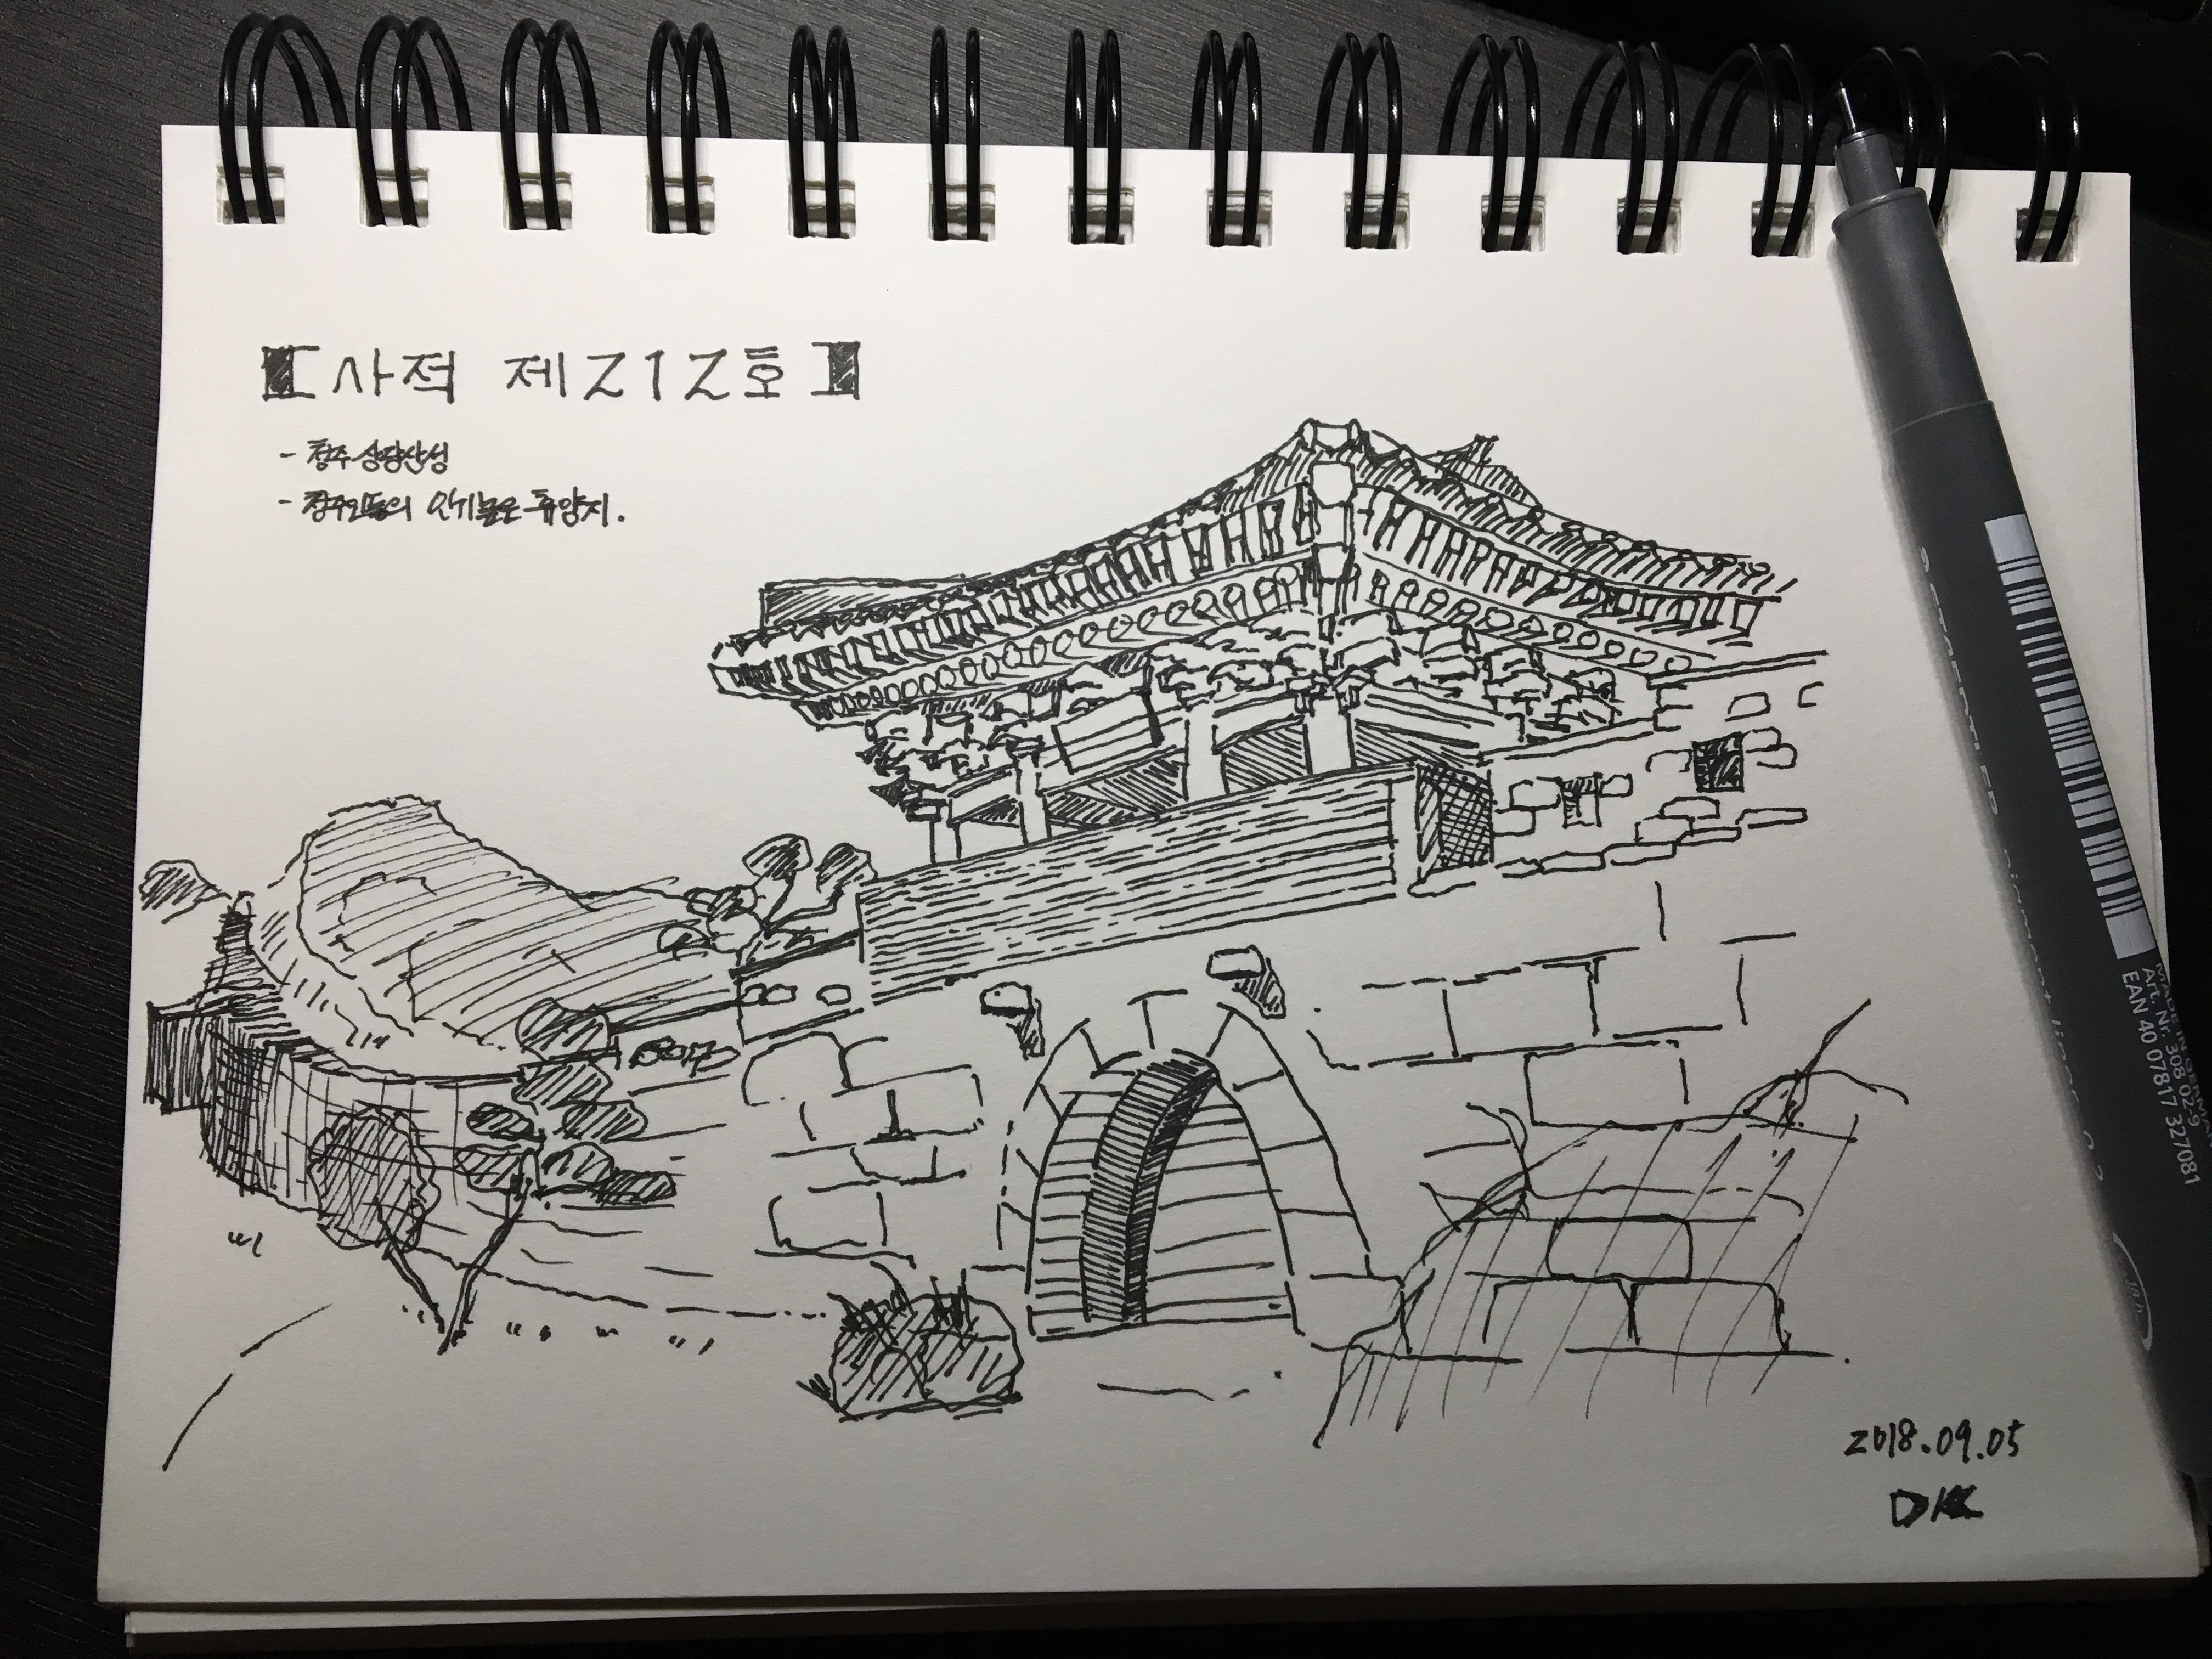 【사적 제212호】
- 청주 상당산성
- 청주인들의 인기높은 휴양지.
2018.09.05
DK
MADE IN GERMANY
Art. Nr. 308 02-9
EAN 40 07817 327081